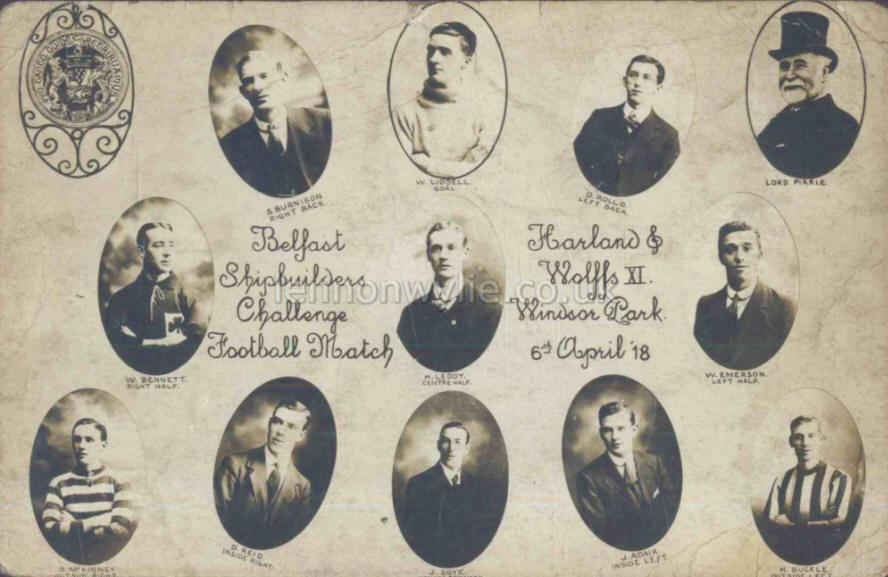 PRO TANTO QUID RETRIBUAMUS
S. BURNISON.
RIGHT BACK.
W. LIDDELL
GOAL.
D. ROLLO.
LEFT BACK
LORD PIRRIE.
W. BENNETT.
RIGHT HALF.
Belfast
Shipbuilders
Challenge
Football Match
H. LEDDY.
CENTRE HALF.
Harland &
Wolffs XI.
Windsor Park.
6th April '18
lennonwylie.co.uk
W. EMERSON.
LEFT HALF.
D. McKINNEY
OUTSIDE RIGHT.
D. REID.
INSIDE RIGHT.
J. ADAIR.
INSIDE LEFT.
H. BUCKLE.
OUTSIDE LEFT.